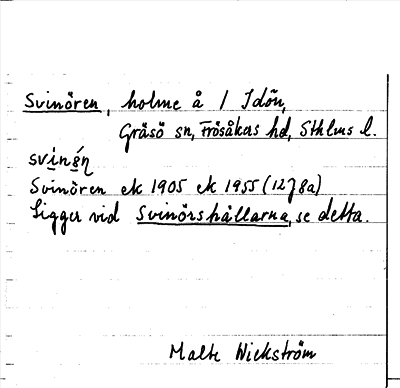 Svinören, holme å / Idön,
Gräsö sn, Frösåkers hd, Sthlms l.
Svinören ek 1905 ek 1955 (12J 8a)
Ligger vid Svinörshällarna, se detta.
Malte Wickström